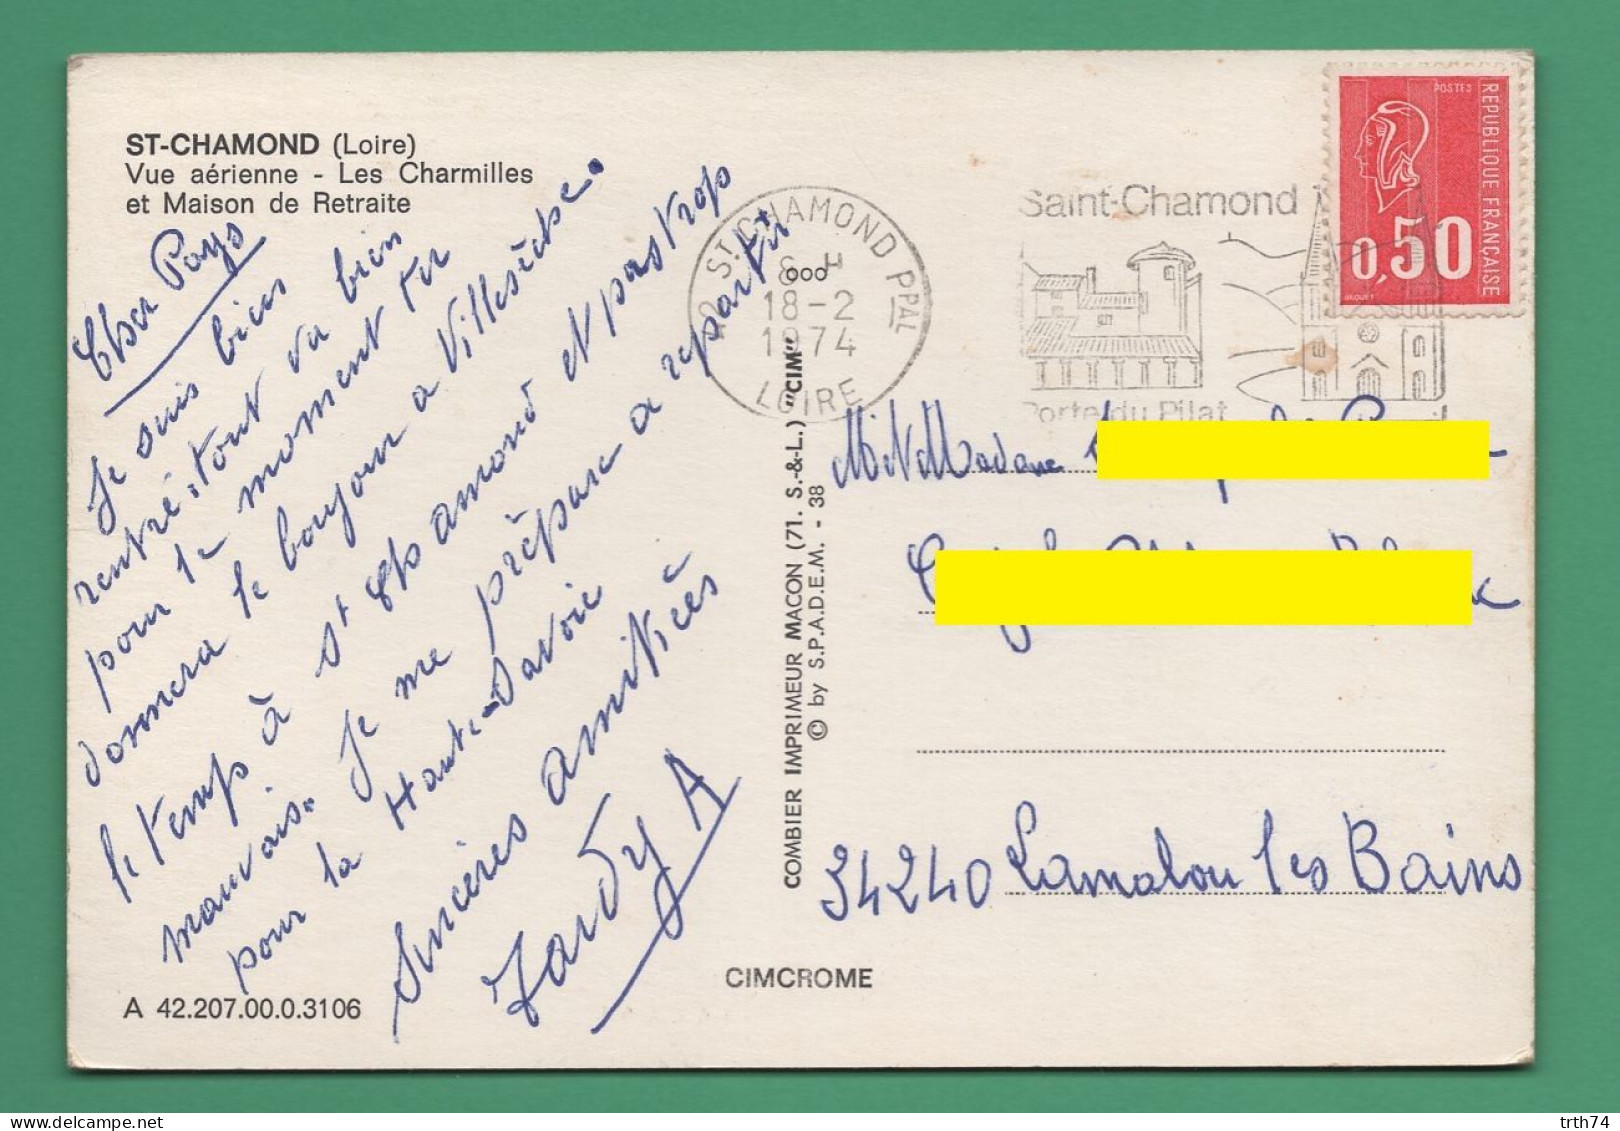 ST-CHAMOND (Loire)
Vue aérienne - Les Charmilles
et Maison de Retraite
Cher Pays
Je suis bien
rentré. tout va bien
pour le moment tu
donnera le boujour a Villesèche.
le temp à St Chamond et pas trop
mauvais. Je me prépare a repartir
pour la Haute-Savoie
Sincères amitiés
Tardy A
A 42.207.00.0.3106
CIMCROME
COMBIER IMPRIMEUR MACON (71. S.-&-L.) "CIM"
© by S.P.A.D.E.M. - 38
ST CHAMOND PPAL
18-2
1974
LOIRE
Saint-Chamond
Porte du Pilat
POSTES
REPUBLIQUE FRANÇAISE
0,50
Madame
34240 Lamalou les Bains
trth74